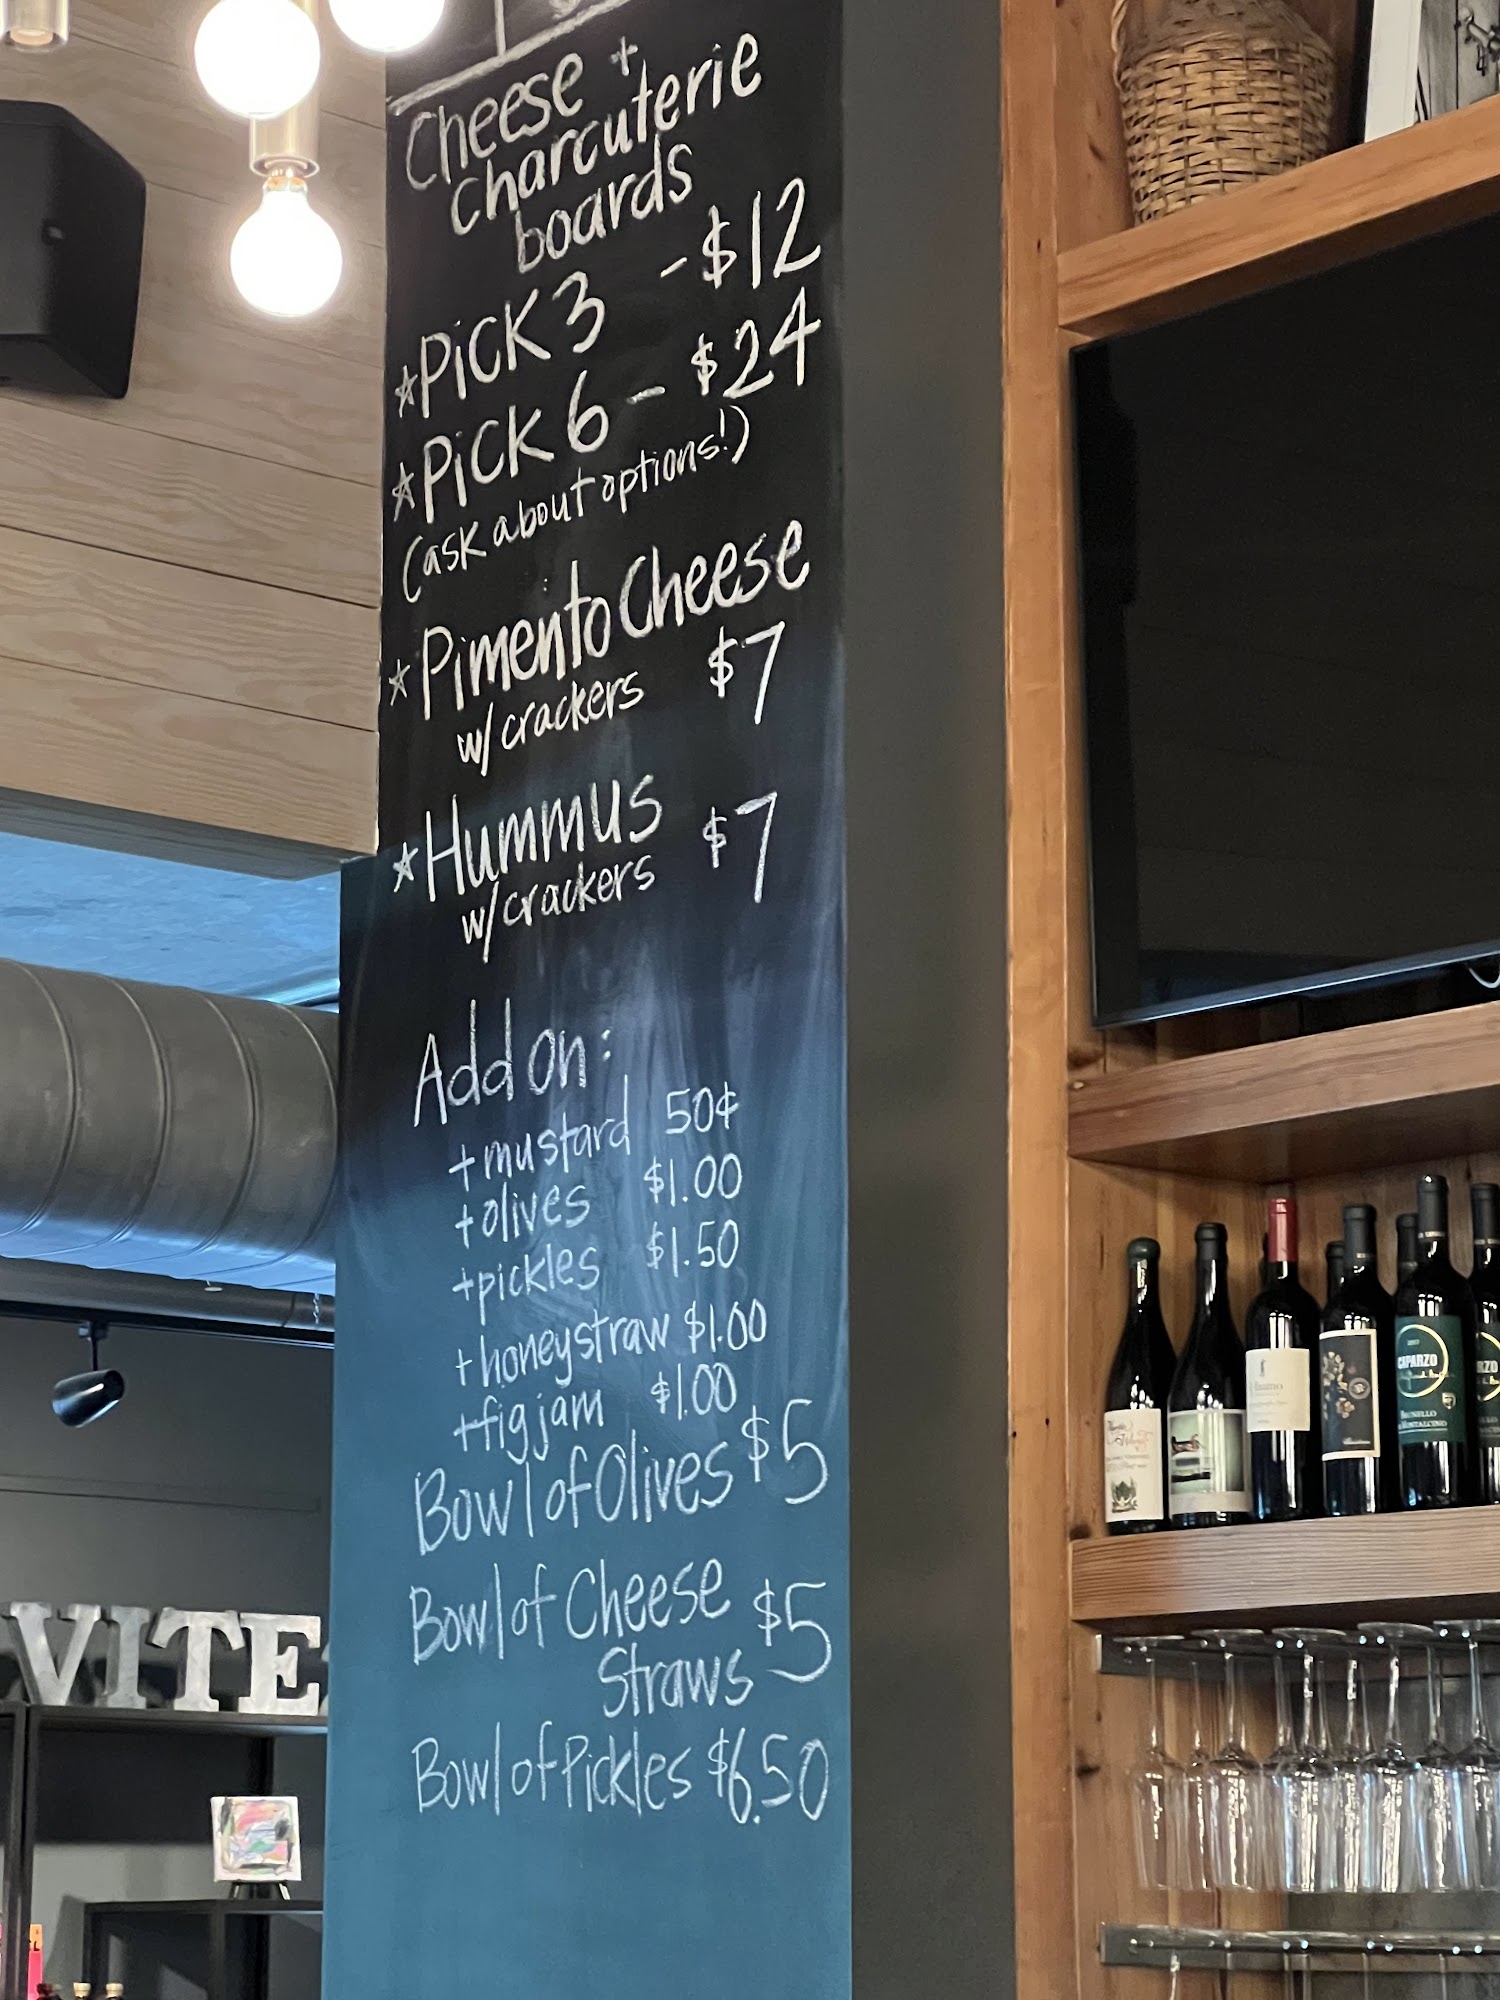 Cheese +
Charcuterie
boards
☆Pick 3 - $12
☆Pick 6 - $24
(ask about options!)
☆Pimento Cheese
w/crackers $7
☆Hummus $7
w/crackers
Add on:
+mustard 50¢
+olives $1.00
+pickles $1.50
+honeystraw $1.00
+fig jam $1.00
Bowl of Olives $5
Bowl of Cheese $5
Straws
Bowl of Pickles $6.50
VITE
2017
CAPARZO
BRUNELLO
MONTALCINO